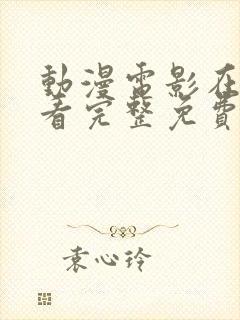 動漫電影在
看完整免費
袁心玲